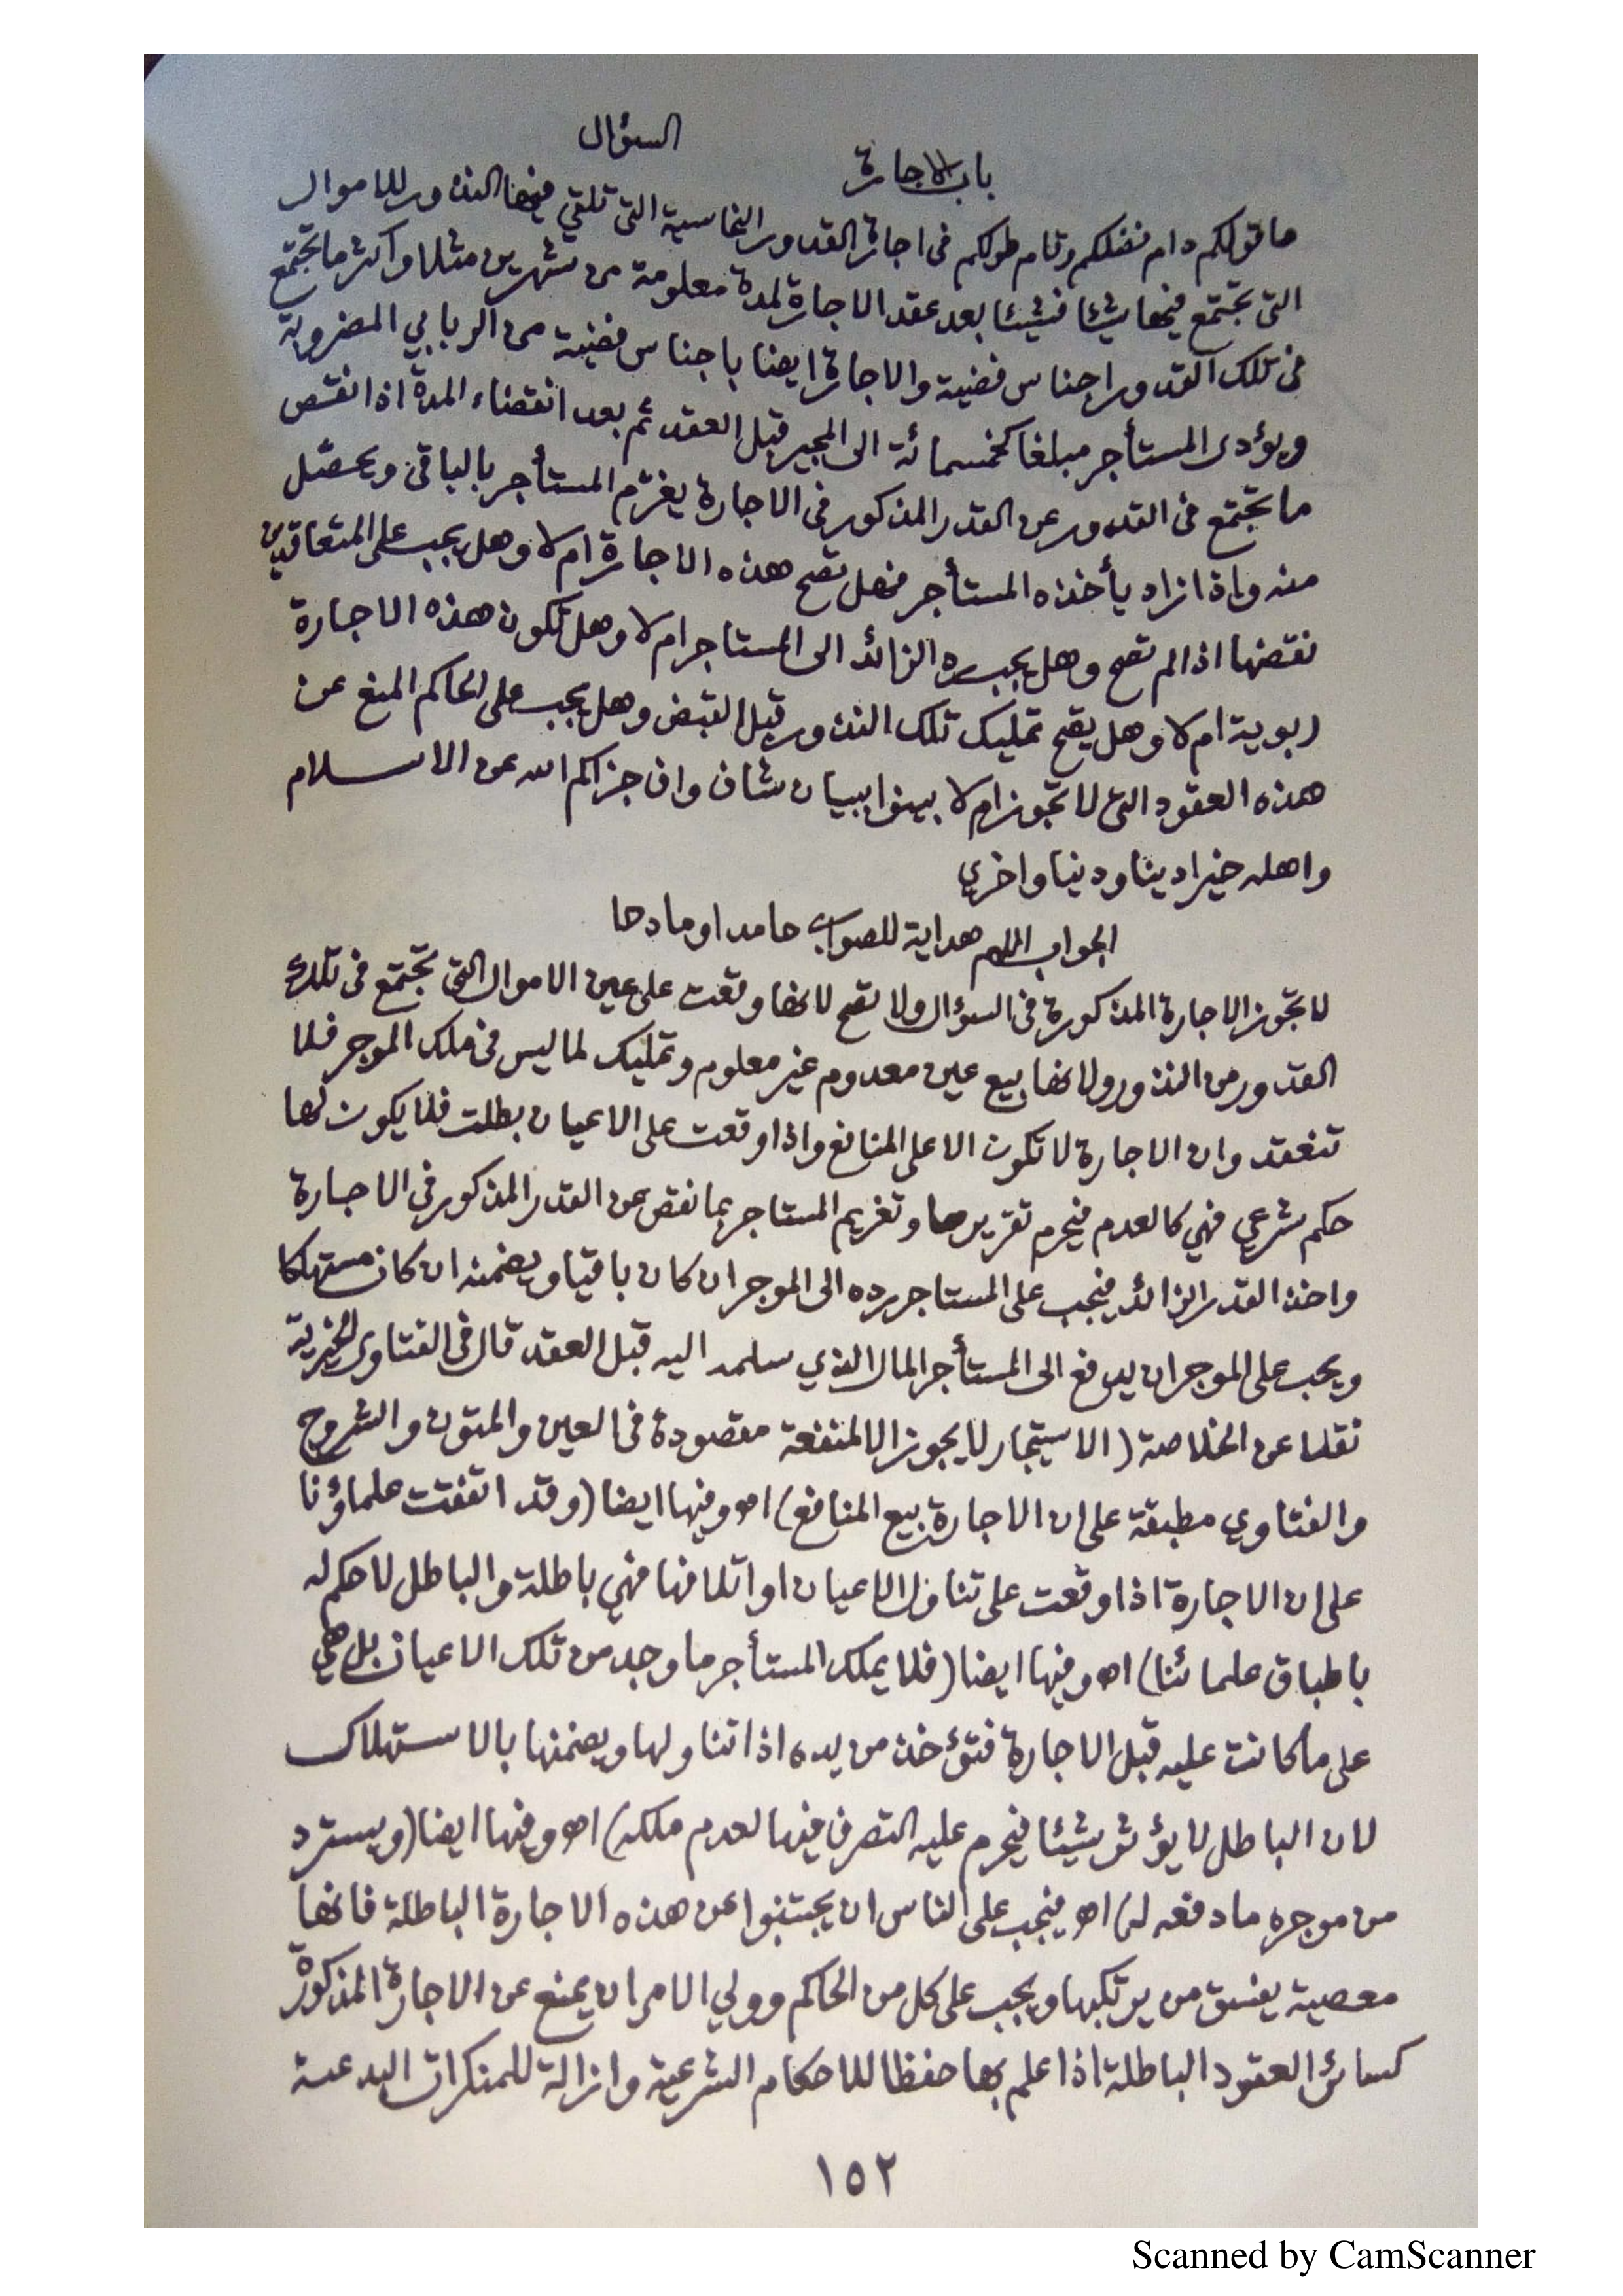 باب الاجارة السؤال
ما قولكم دام فضلكم وتام طولكم فى اجارة القدور النحاسية التى تلقي فيها النذور للاموال
التى تجتمع فيها شيئا فشيئا بعد عقد الاجارة لمدة معلومة من شهرين مثلا واكثر ما تجتمع
فى تلك القدور اجناس فضية والاجارة ايضا باجناس فضية من الربابي المضروبة
ويؤدى المستأجر مبلغا كخمسمائة الى المجير قبل العقد ثم بعد انقضاء المدة اذا انقص
ما تجتمع فى القدور عن القدر المذكور فى الاجارة يغرّم المستأجر بالباقى ويحصّل
منه واذا زاد يأخذه المستأجر فهل تصح هذه الاجارة ام لا وهل يجب على المتعاقدين
نقضها اذا لم تصح وهل يجب رد الزائد الى المستاجر ام لا وهل تكون هذه الاجارة
ربوية ام لا وهل يصح تمليك تلك النذور قبل القبض وهل يجب على الحاكم المنع عن
هذه العقود التى لا تجوز ام لا بينوا ببيان شاف واف جزاكم الله عن الاسلام
واهله خيرا دينا ودنيا واخري
الجواب اللهم هداية للصواب حامدا ومادحا
لا تجوز الاجارة المذكورة فى السؤال ولا تصح لانها وقعت على عين الاموال التى تجتمع فى تلك
القدور من النذور ولانها بيع عين معدوم غير معلوم وتمليك لما ليس فى ملك الموجر فلا
تنعقد وان الاجارة لا تكون الا على المنافع واذا وقعت على الاعيان بطلت فلا يكون لها
حكم شرعي فهي كالعدم فيحرم تقريرها وتغريم المستاجر بما نقص عن القدر المذكور فى الاجارة
واخذ القدر الزائد فيجب على المستاجر رده الى الموجر ان كان باقيا ويضمنه ان كان مستهلكا
ويجب على الموجر ان يدفع الى المستأجر المال الذي سلمه اليه قبل العقد قال فى الفتاوى الخيرية
نقلا عن الخلاصة (الاستيجار لا يجوز الا لمنفعة مقصودة فى العين والمتون والشروح
والفتاوي مطبقة على ان الاجارة بيع المنافع) اه وفيها ايضا (وقد اتفقت علماؤنا
على ان الاجارة اذا وقعت على تناول الاعيان او اتلافها فهي باطلة والباطل لا حكم له
باطباق علمائنا) اه وفيها ايضا (فلا يملك المستأجر ما وجد من تلك الاعيان بل هي
على ما كانت عليه قبل الاجارة فتؤخذ من يده اذا تناولها ويضمنها بالاستهلاك
لان الباطل لا يؤثر شيئا فيحرم عليه التصرف فيها لعدم ملكه) اه وفيها ايضا (ويسترد
من موجره ما دفعه له) اه فيجب على الناس ان يجتنبوا عن هذه الاجارة الباطلة فانها
معصية يفسق من يرتكبها ويجب على كل من الحاكم وولي الامر ان يمنع عن الاجارة المذكورة
كسائر العقود الباطلة اذا علم بها حفظا للاحكام الشرعية وازالة للمنكرات البدعية
١٥٢
Scanned by CamScanner